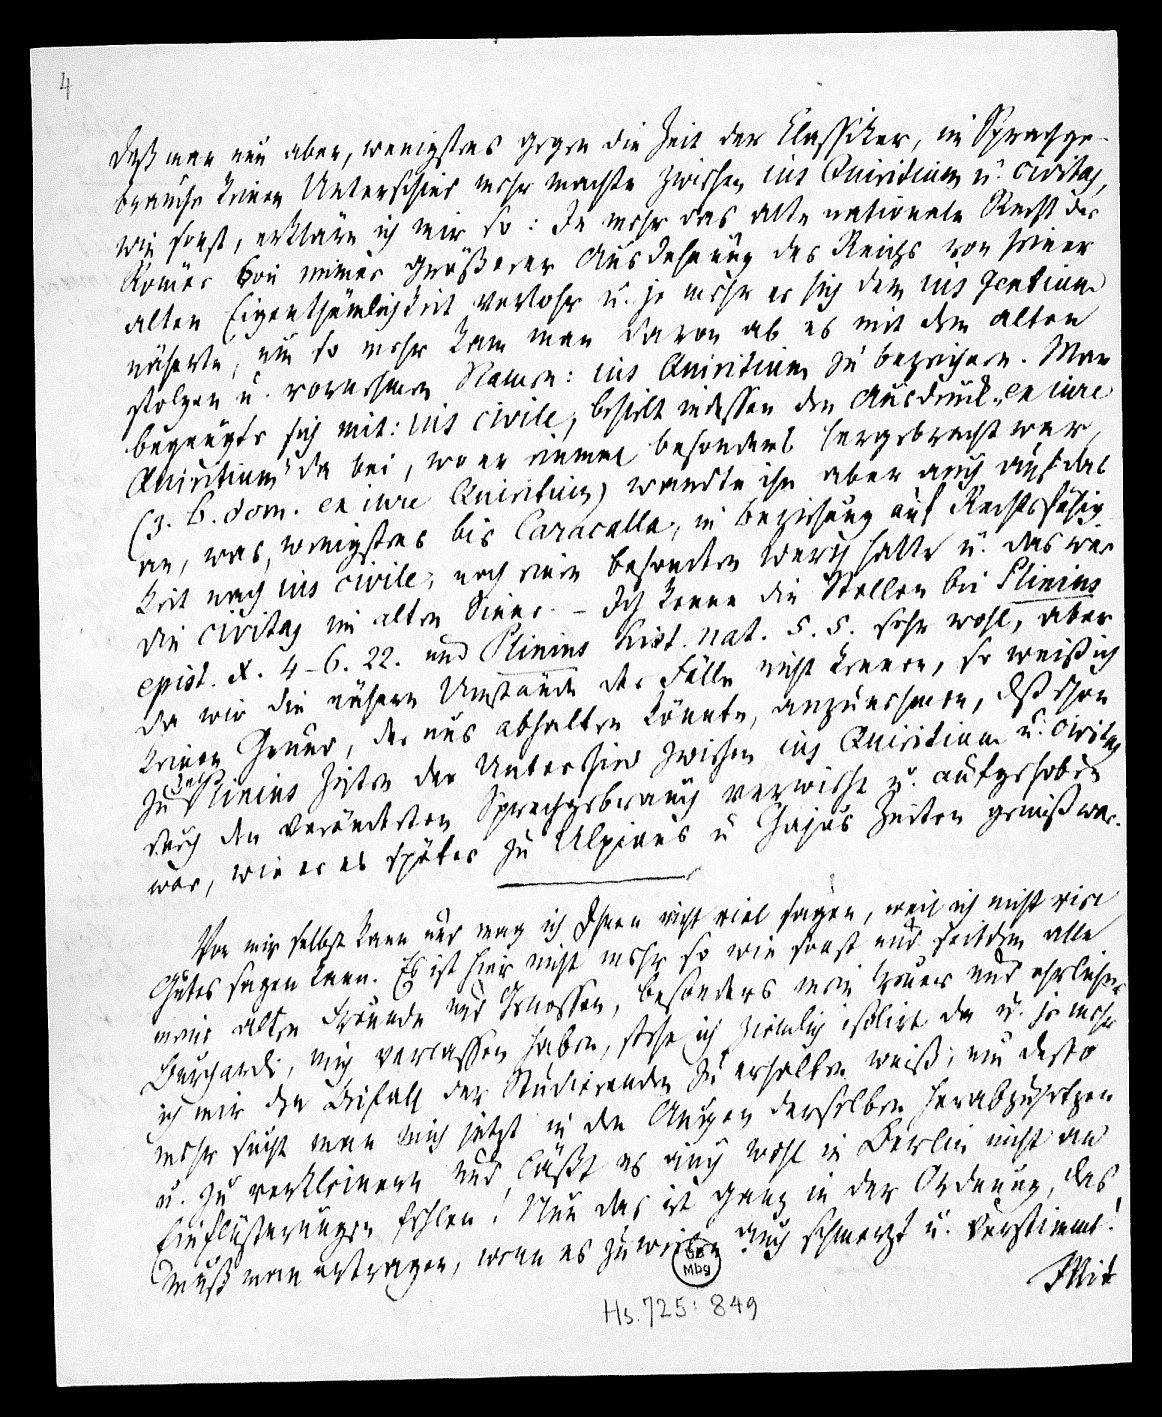 4
daß man nun aber, wenigstens gegen die Zeit der Classiker, im Sprachge-
brauche keinen Unterschied mehr machte zwischen ius Quiritium u. civitas,
wie sonst, erkläre ich mir so: Je mehr das alte nationale Recht der
Römer bei immer größerer Ausdehnung des Reichs von seiner
alten Eigenthümlichkeit verlohr u. je mehr es sich dem ius gentium
näherte, um so mehr kam man davon ab es mit dem alten
stolzen u. vornehmen Namen: ius Quiritium zu bezeichnen. Man
begnügte sich mit: ius civile, behielt indessen den Ausdruck „ex iure
Quiritium“ da bei, wo er einmal besonders hergebracht war,
(z. B. dom. ex iure Quiritium) wandte ihn aber auch auf das
an, was, wenigstens bis Caracalla, in Beziehung auf Rechtsfähig-
keit nach ius civile, noch einen besondern Werth hatte u. das war
die civitas im alten Sinne. – Ich kenne die Stellen bei Plinius
epist. X. 4–6. 22. und Plinius hist. nat. 5. 5. sehr wohl, aber
da wir die nähern Umstände der Fälle nicht kennen, so weiß ich
keinen Grund, der uns abhalten könnte, anzunehmen, daß schon
zu Plinius Zeiten der Unterschied zwischen ius Quiritium u. civitas
durch den veränderten Sprachgebrauch verwischt u. aufgehoben
war, wie er es später zu Ulpians u Gajus Zeiten gewiß war.
Von mir selbst kann und mag ich Ihnen nicht viel sagen, weil ich nicht viel
Gutes sagen kann. Es ist hier nicht mehr so wie sonst und seitdem alle
meine alten Freunde und Genossen, besonders mein treuer und ehrlicher
Burchardi, mich verlassen haben, stehe ich ziemlich isolirt da u. je mehr
ich mir den Beifall der Studierenden zu erhalten weiß, um desto
mehr sucht man mich jetzt in den Augen derselben herabzusetzen
u. zu verkleinern und läßt es auch wohl in Berlin nicht an
Einflüsterungen fehlen! Nun das ist ganz in der Ordnung, das
muß man ertragen, wenn es zuweilen auch schmerzt u. verstimmt!
Mit
UB
Mbg
Hs. 725: 849